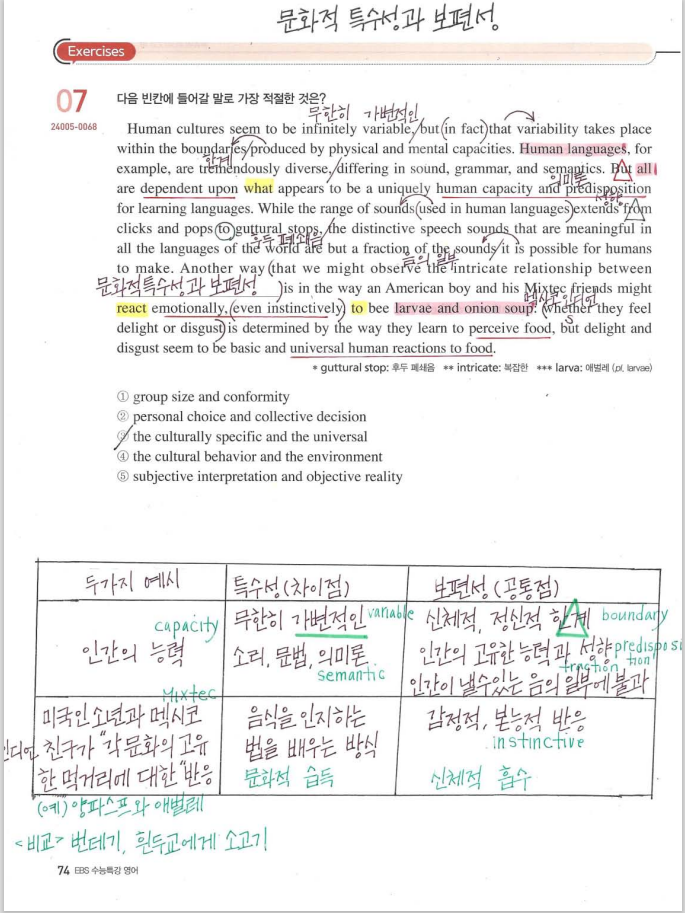 문화적 특수성과 보편성
Exercises
07
24005-0068
다음 빈칸에 들어갈 말로 가장 적절한 것은?
무한히 가변적인
Human cultures seem to be infinitely variable, but in fact that variability takes place
within the boundaries produced by physical and mental capacities. Human languages, for
한계
example, are tremendously diverse, differing in sound, grammar, and semantics. But all
의미론
are dependent upon what appears to be a uniquely human capacity and predisposition
성향
for learning languages. While the range of sounds used in human languages extends from
clicks and pops to guttural stops, the distinctive speech sounds that are meaningful in
후두 폐쇄음
all the languages of the world are but a fraction of the sounds it is possible for humans
음의 일부
to make. Another way that we might observe the intricate relationship between
문화적특수성과 보편성
is in the way an American boy and his Mixtec friends might
멕시코 인디언
react emotionally, even instinctively, to bee larvae and onion soup: whether they feel
delight or disgust is determined by the way they learn to perceive food, but delight and
S
disgust seem to be basic and universal human reactions to food.
* guttural stop: 후두 폐쇄음 ** intricate: 복잡한 *** larva: 애벌레 (pl. larvae)
① group size and conformity
② personal choice and collective decision
③ the culturally specific and the universal
④ the cultural behavior and the environment
⑤ subjective interpretation and objective reality
두가지 예시 특수성(차이점) 보편성(공통점)
capacity 무한히 가변적인 variable 신체적, 정신적 한계 boundary
인간의 능력 소리, 문법, 의미론 인간의 고유한 능력과 성향 predisposition
semantic fraction
인간이 낼수있는 음의 일부에 불과
Mixtec
미국인 소년과 멕시코 음식을 인지하는 감정적, 본능적 반응
인디언 친구가 "각 문화의 고유 법을 배우는 방식 instinctive
한 먹거리에 대한" 반응 문화적 습득 신체적 흡수
(예) 양파스프와 애벌레
<비교> 번데기, 힌두교에게 소고기
74 EBS 수능특강 영어